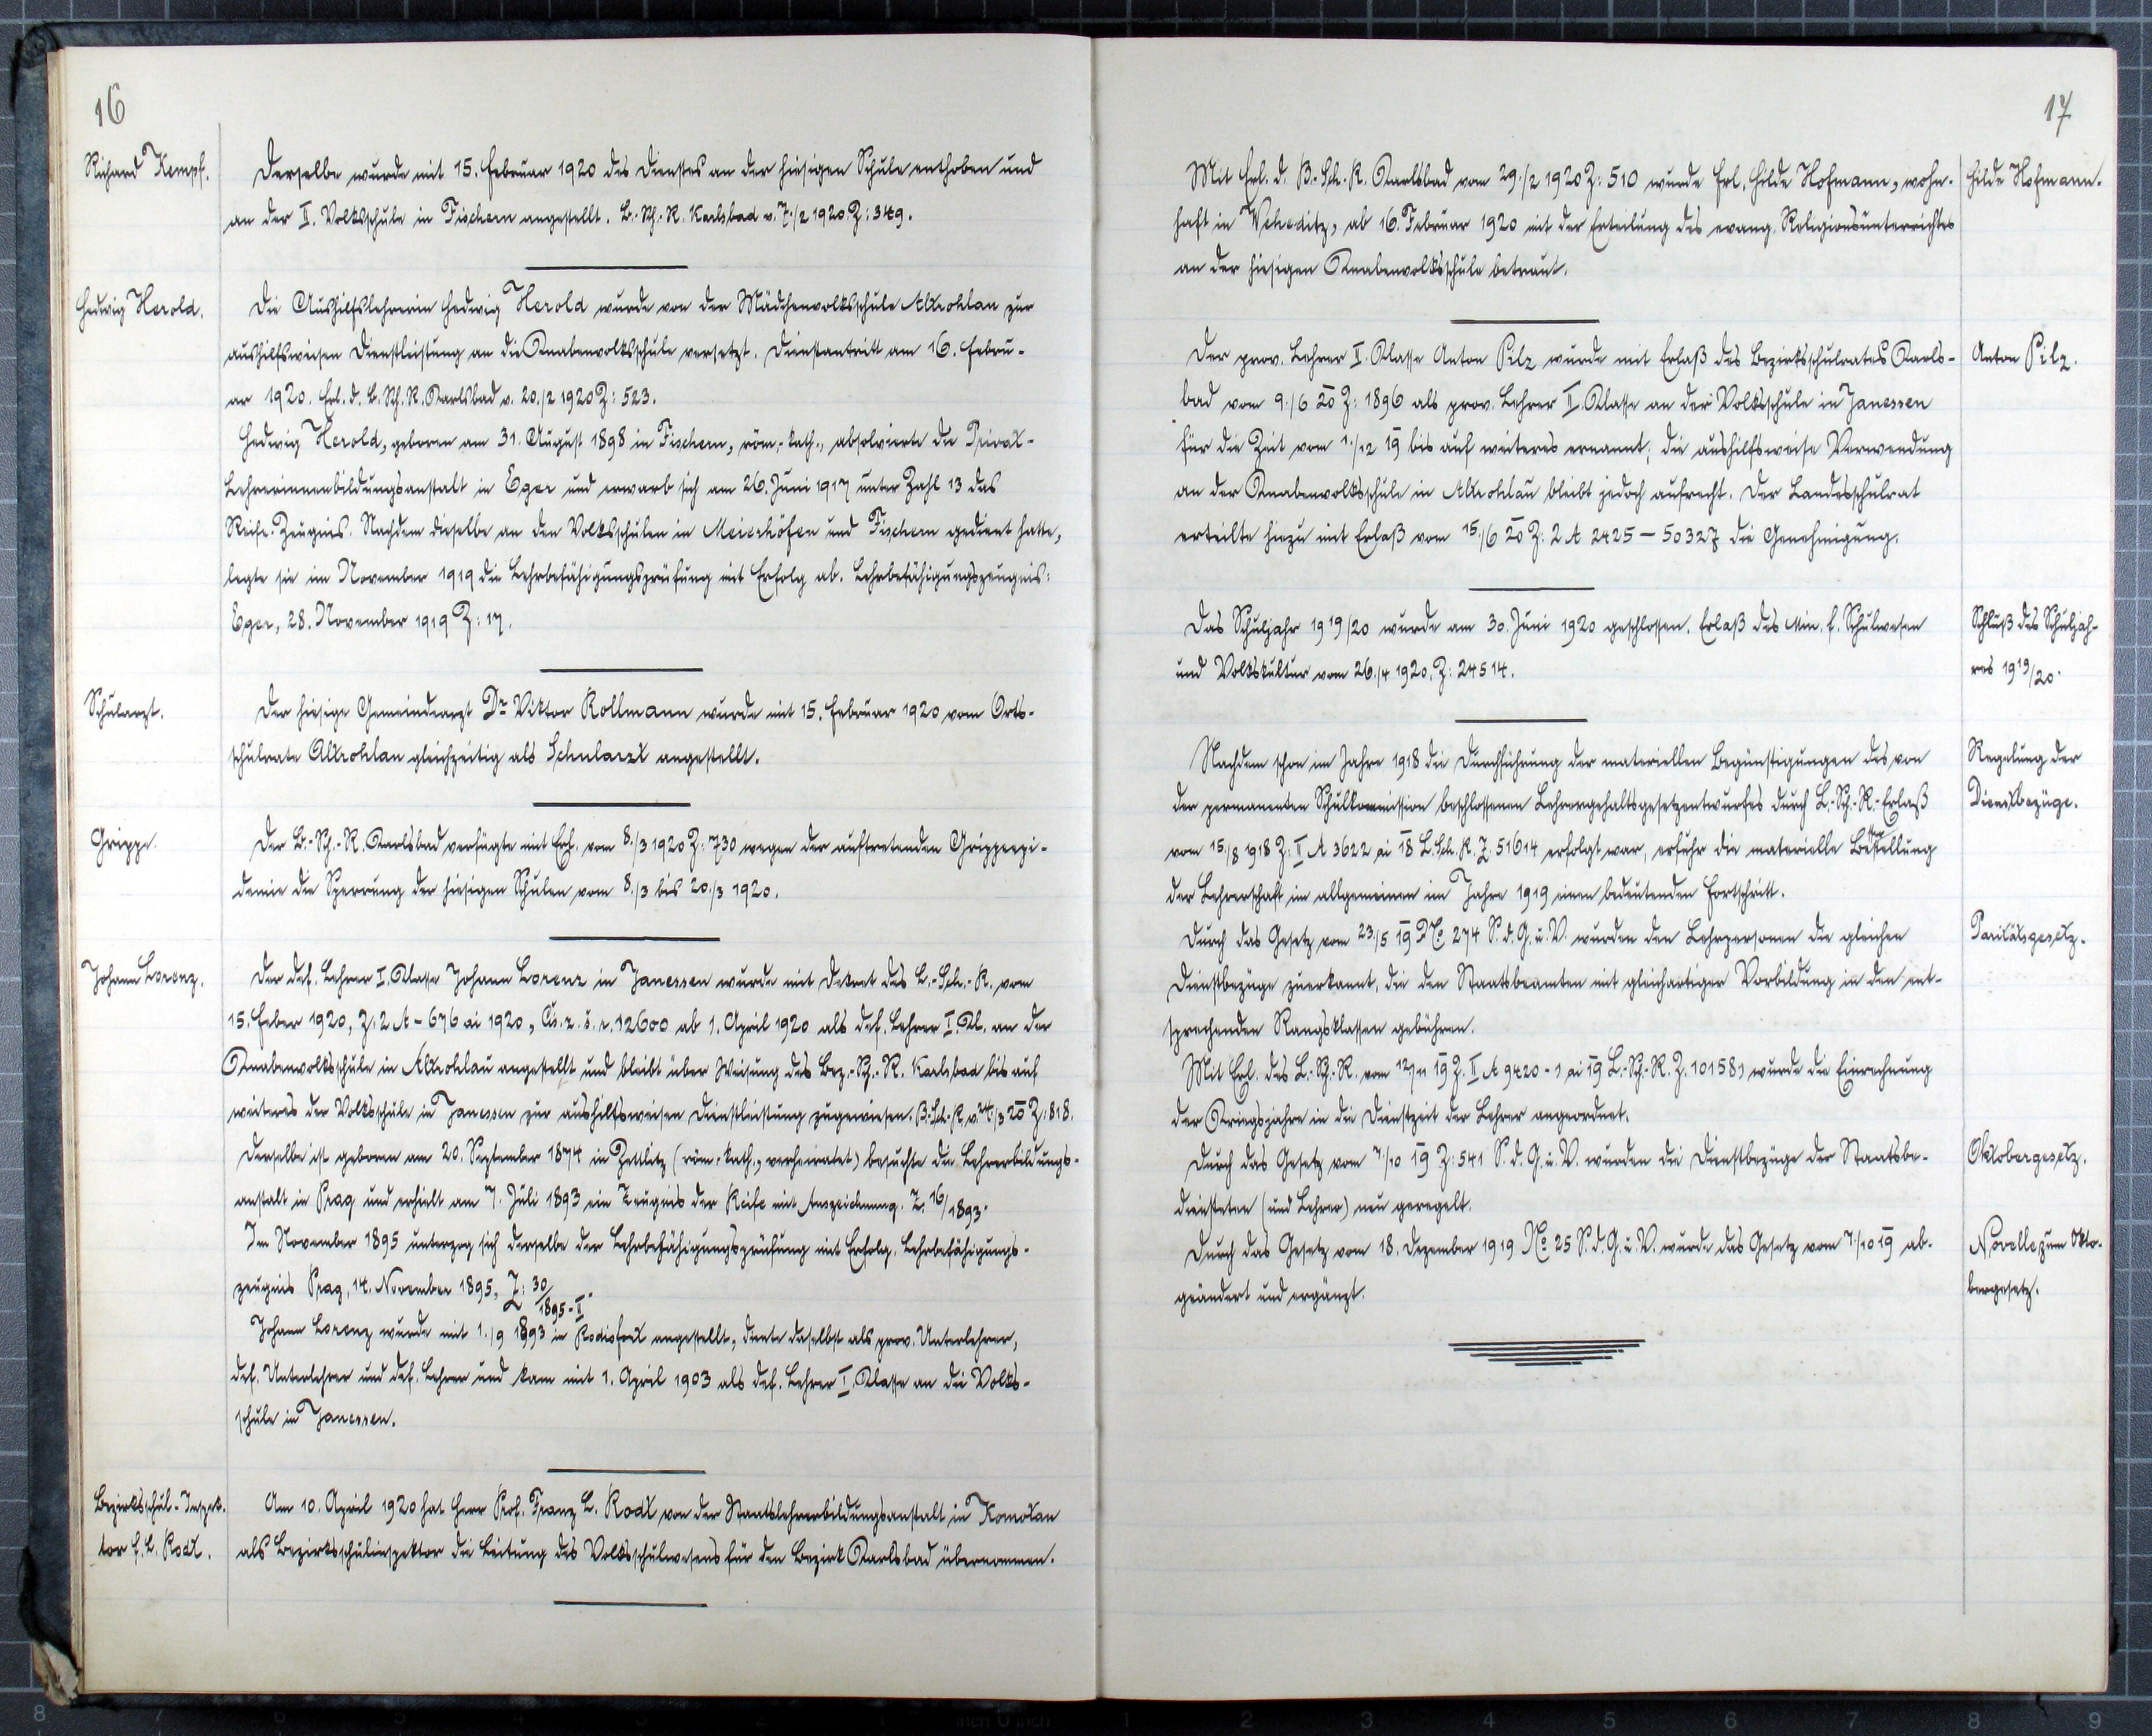 16
Richard Kempf.
Derselbe wurde mit 15. Februar 1920 des Dienstes an der hiesigen Schule enthoben und
an der II. Volksschule in Fischern angestellt. B.-Sch.-R. Karlsbad v. 7./2 1920 Z: 349.
Hedwig Herold.
Die Aushilfslehrerin Hedwig Herold wurde von der Mädchenvolksschule Altrohlau zur
aushilfsweisen Dienstleistung an die Knabenvolksschule versetzt. Dienstantritt am 16. Febru-
ar 1920. Erl. d. B. Sch. R. Karlsbad v. 20./2 1920 Z: 523.
Hedwig Herold, geboren am 31. August 1898 in Fischern, röm.-kath., absolvierte die Privat-
Lehrerinnenbildungsanstalt in Eger und erwarb sich am 26. Juni 1917 unter Zahl 13 das
Reife-Zeugnis. Nachdem dieselbe an den Volksschulen in Meierhöfen und Fischern gedient hatte,
legte sie im November 1919 die Lehrbefähigungsprüfung mit Erfolg ab. Lehrbefähigungszeugnis:
Eger, 28. November 1919 Z: 17.
Schularzt.
Der hiesige Gemeindearzt Dr Viktor Kollmann wurde mit 15. Februar 1920 vom Orts-
schulrate Altrohlau gleichzeitig als Schularzt angestellt.
Grippe.
Der B.-Sch.-R. Karlsbad verfügte mit Erl. vom 8./3 1920 Z: 730 wegen der auftretenden Grippeepi-
demie die Sperrung der hiesigen Schulen vom 8./3 bis 20./3 1920.
Johann Lorenz.
Der def. Lehrer I. Klasse Johann Lorenz in Janessen wurde mit Dekret des L.-Sch.-R. vom
15. Feber 1920, Z: 2 A - 676 ai 1920, Čís. z. š. r. 12600 ab 1. April 1920 als def. Lehrer I. Kl. an der
Knabenvolksschule in Altrohlau angestellt und bleibt über Weisung des Bez.-Sch.-R. Karlsbad bis auf
weiteres der Volksschule in Janessen zur aushilfsweisen Dienstleistung zugewiesen. B.-Sch.-R. v. 24./3 20 Z: 818.
Derselbe ist geboren am 20. September 1874 in Zettlitz (röm.-kath., verheiratet) besuchte die Lehrerbildungs-
anstalt in Prag und erhielt am 7. Juli 1893 ein Zeugnis der Reife mit Auszeichnung. Z. 16/1893.
Im November 1895 unterzog sich derselbe der Lehrbefähigungsprüfung mit Erfolg. Lehrbefähigungs-
zeugnis Prag, 14. November 1895, Z: 30/1895-I.
Johann Lorenz wurde mit 1./9 1893 in Rodisfort angestellt, diente daselbst als prov. Unterlehrer,
def. Unterlehrer und def. Lehrer und kam mit 1. April 1903 als def. Lehrer I. Klasse an die Volks-
schule in Janessen.
Bezirksschul-Inspek-
tor F. L. Rodt.
Am 10. April 1920 hat Herr Prof. Franz L. Rodt von der Staatslehrerbildungsanstalt in Komotau
als Bezirksschulinspektor die Leitung des Volksschulwesens für den Bezirk Karlsbad übernommen.
17
Mit Erl. d. B.-Sch.-R. Karlsbad vom 29./2 1920 Z: 510 wurde Frl. Hilde Hofmann, wohn-
haft in Weheditz, ab 16. Februar 1920 mit der Erteilung des evang. Religionsunterrichtes
an der hiesigen Knabenvolksschule betraut.
Hilde Hofmann.
Der prov. Lehrer II. Klasse Anton Pilz wurde mit Erlaß des Bezirksschulrates Karls-
bad vom 9./6 20 Z: 1896 als prov. Lehrer II. Klasse an der Volksschule in Janessen
für die Zeit vom 1./12 19 bis auf weiteres ernannt; die aushilfsweise Verwendung
an der Knabenvolksschule in Altrohlau bleibt jedoch aufrecht. Der Landesschulrat
erteilte hiezu mit Erlaß vom 15./6 20 Z: 2 A 2425 - 50327 die Genehmigung.
Anton Pilz.
Das Schuljahr 1919/20 wurde am 30. Juni 1920 geschlossen. Erlaß des Min. f. Schulwesen
und Volkskultur vom 26./4 1920, Z: 24514.
Schluß des Schuljah-
res 1919/20.
Nachdem schon im Jahre 1918 die Durchführung der materiellen Begünstigungen des von
der permanenten Schulkommission beschlossenen Lehrergehaltsgesetzentwurfes durch L.-Sch.-R.-Erlaß
vom 15./8 1918 Z: II A 3622 ai 18 L. Sch. R. Z. 51614 erfolgt war, erfuhr die materielle Besserstellung
der Lehrerschaft im allgemeinen im Jahre 1919 einen bedeutenden Fortschritt.
Regelung der
Dienstbezüge.
Durch das Gesetz vom 23./5 19 No 274 S. d. G. u. V. wurden den Lehrpersonen die gleichen
Dienstbezüge zuerkannt, die den Staatsbeamten mit gleichartiger Vorbildung in den ent-
sprechenden Rangsklassen gebühren.
Paritätsgesetz.
Mit Erl. des L.-Sch.-R. vom 12/11 19 Z. II A 9420 - 1 ai 19 L.-Sch.-R. Z. 101581 wurde die Einrechnung
der Kriegsjahre in die Dienstzeit der Lehrer angeordnet.
Durch das Gesetz vom 7./10 19 Z: 541 S. d. G. u. V. wurden die Dienstbezüge der Staatsbe-
diensteten (und Lehrer) neu geregelt.
Oktobergesetz.
Durch das Gesetz vom 18. Dezember 1919 No 25 S. d. G. u. V. wurde das Gesetz vom 7./10 19 ab-
geändert und ergänzt.
Novelle zum Okto-
bergesetz.